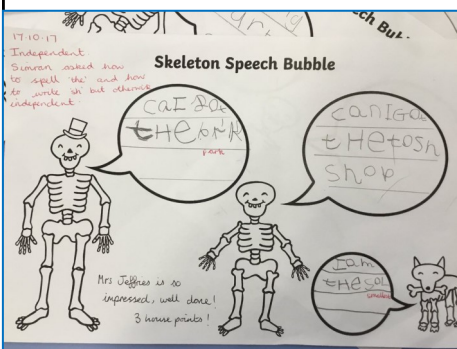 ch Bub
17.10.17
Independent.
Simran asked how
to spell 'the' and how
to write 'sh' but otherwise
independent.
Skeleton Speech Bubble
caI Go
tHE
park
canIGo
tHEtosh
shop
Iam
tHESol
smallest
Mrs Jeffries is so
impressed, well done!
3 house points!